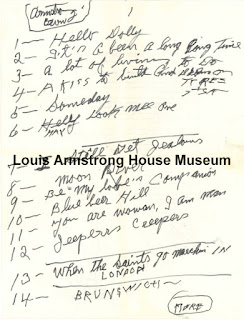 1
1— Hello Dolly
2— It's a been a long long time
3— a lot of livin to Do
4— A Kiss to built And dream on
5— Someday
6— Kelly Look Mee Ove
7— I Still Get Jealous
Louis Armstrong House Museum
8— Moon River
9— Be "My Life's Companion
10— Blue beer Hill
11— You are woman, I am man
12— Jeeperrs Creepers
13— When the Saints go marchin IN
LONDON
14— BRUNSWICK
MORE